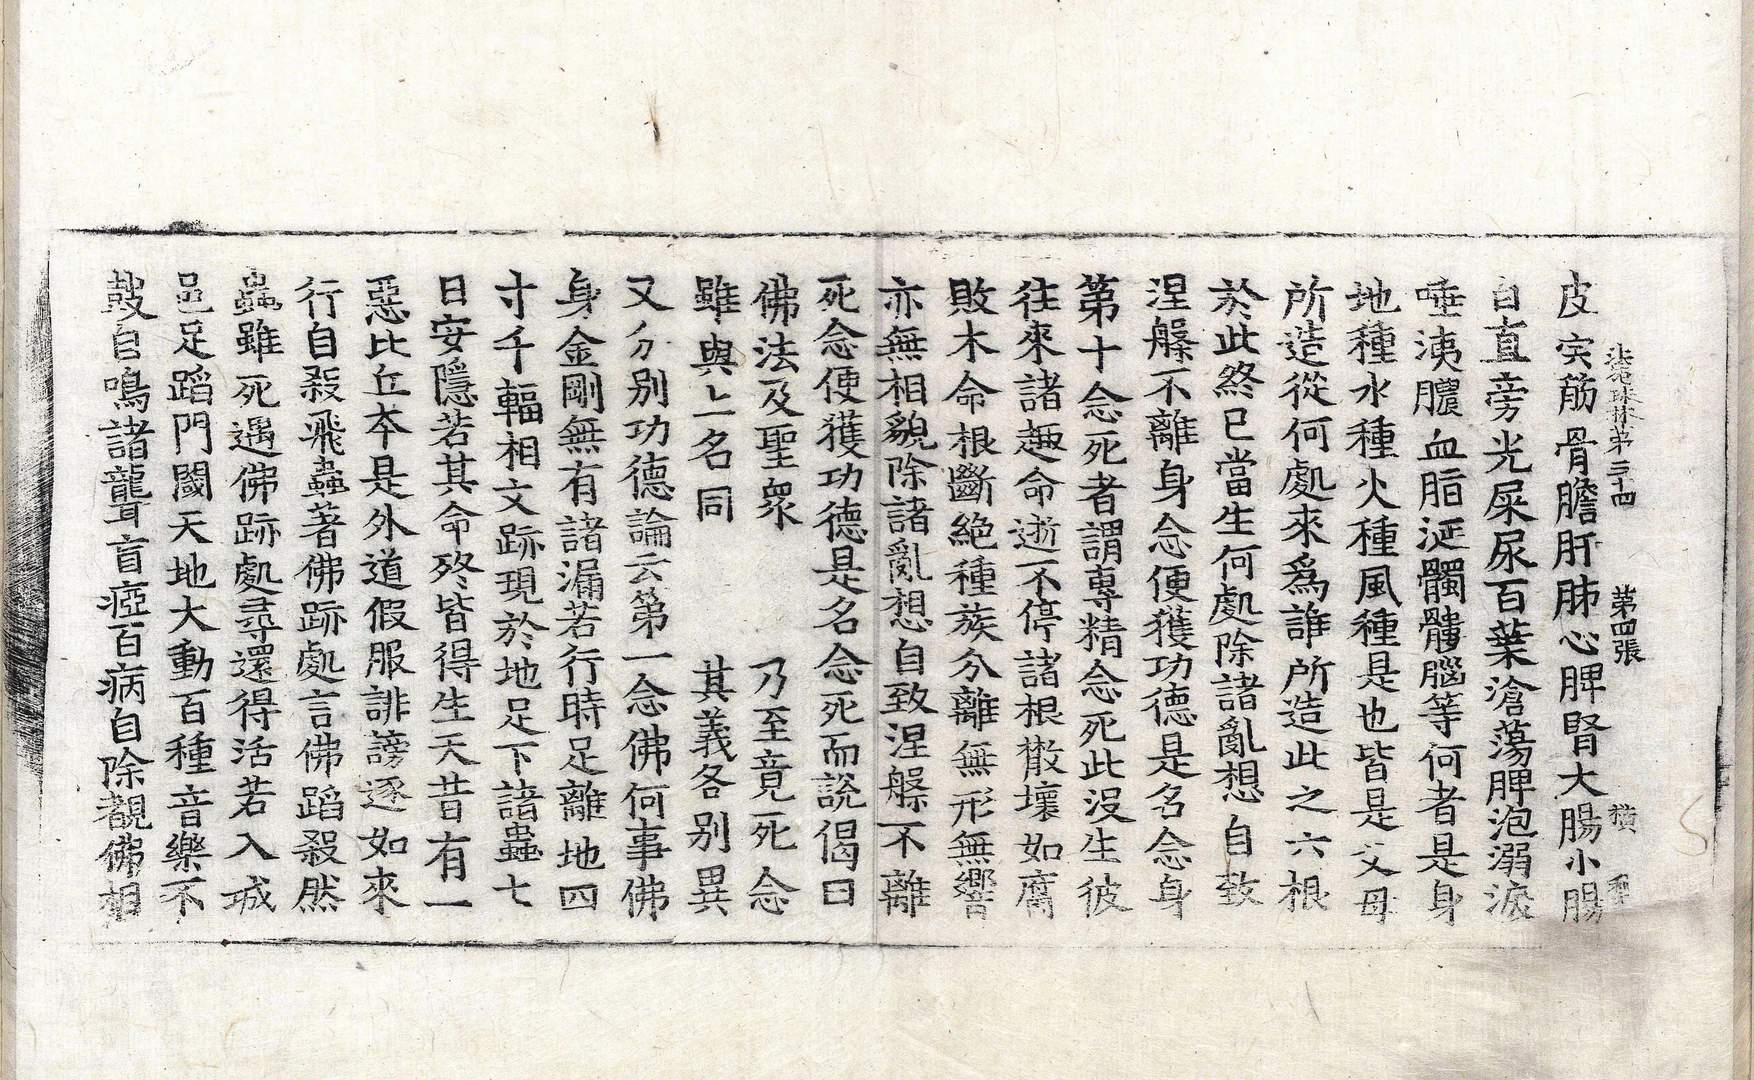 法苑珠林第三十四　第四張　橫
皮宍筋骨膽肝肺心脾腎大腸小腸
白直旁光屎尿百葉滄蕩脾泡溺淚
唾洟膿血脂涎髑髏腦等何者是身
地種水種火種風種是也皆是父母
所造從何處來爲誰所造此之六根
於此終已當生何處除諸亂想自致
涅槃不離身念便獲功德是名念身
第十念死者謂專精念死此沒生彼
往來諸趣命逝不停諸根散壞如腐
敗木命根斷絕種族分離無形無響
亦無相貌除諸亂想自致涅槃不離
死念便獲功德是名念死而說偈曰
佛法及聖衆　乃至竟死念
雖與上名同　其義各別異
又分別功德論云第一念佛何事佛
身金剛無有諸漏若行時足離地四
寸千輻相文跡現於地足下諸蟲七
日安隱若其命終皆得生天昔有一
惡比丘本是外道假服誹謗逐如來
行自殺飛蟲著佛跡處言佛蹈殺然
蟲雖死遇佛跡處尋還得活若入城
邑足蹈門閫天地大動百種音樂不
鼓自鳴諸聾盲瘂百病自除覩佛相